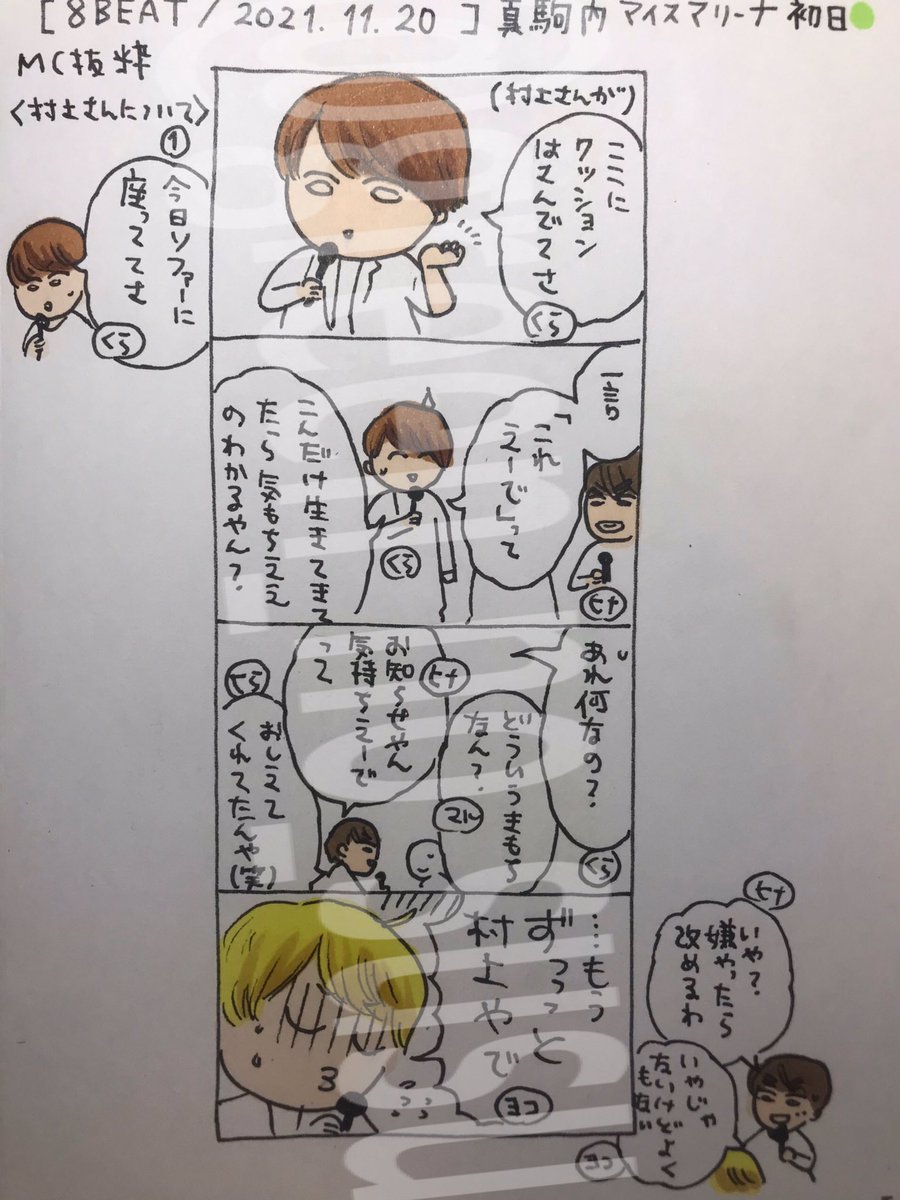 [8BEAT/2021.11.20]真駒内アイスアリーナ初日
MC抜粋
<村上さんについて>
①
今日ソファーに
座っててさ
くら
(村上さんが)
ここに
クッション
はさんでてさ
くら
一言
「これ
えーで」って
ヒナ
くら
こんだけ生きてきて
たら気もちええ
のわかるやん?
あれ何なの?
くら
どういうきもち
なん?
マル
ヒナ
お知らせやん
気持ちえーで
って
ヒナ
おしえて
くれてたんや(笑)
…もう
ずっっと
村上やで
ヨコ
ヒナ
いや?
嫌やったら
改めるわ
いやじゃ
ないけどよく
も ない
ヨコ